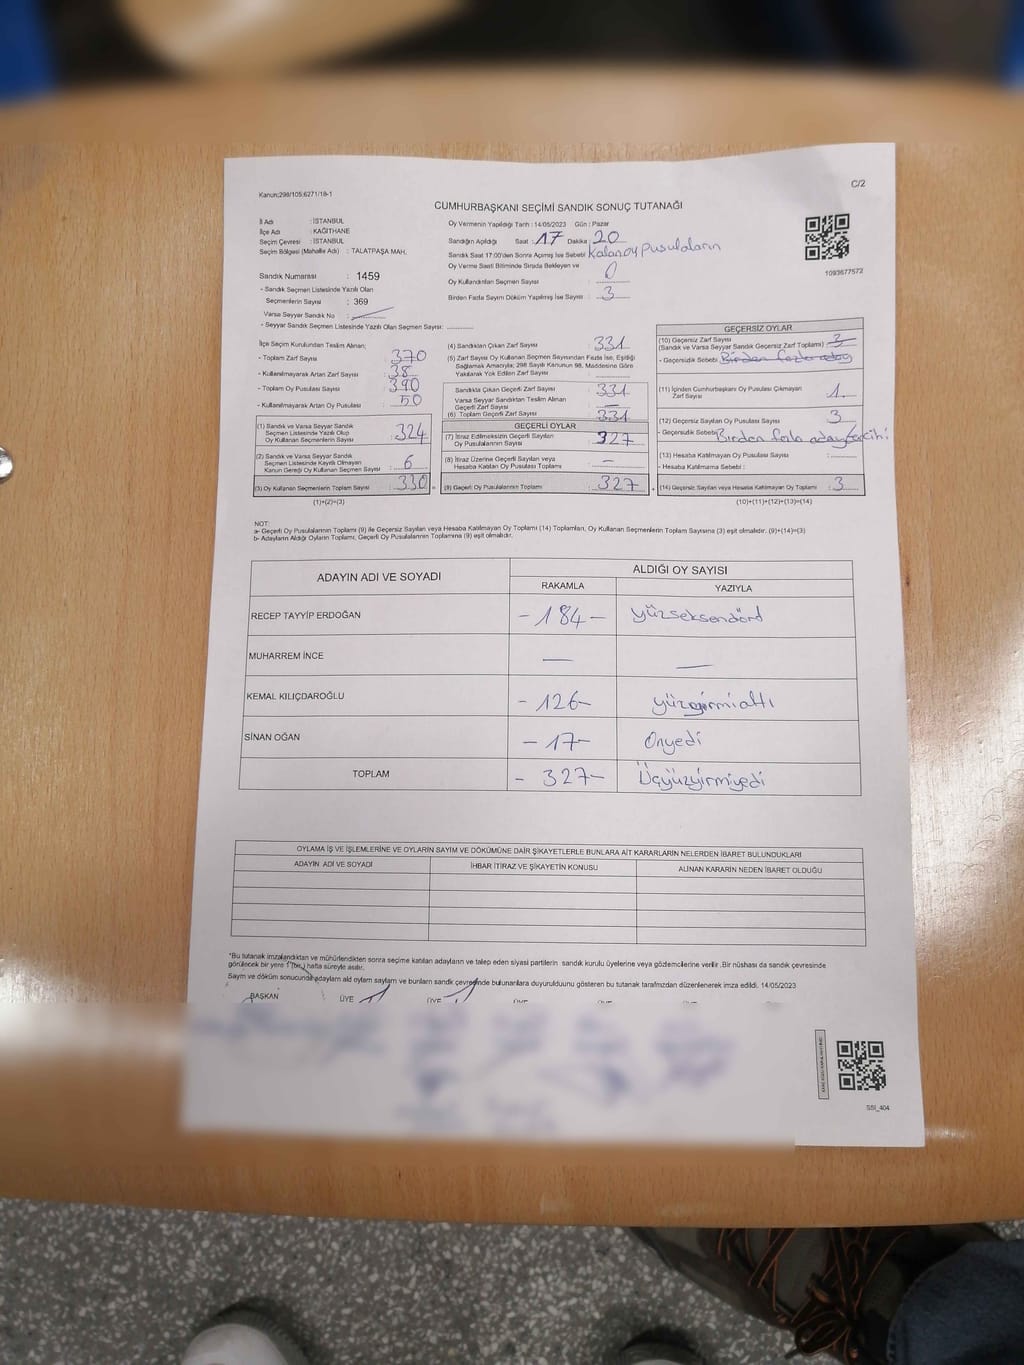 Kanun:298/105:6271/18-1
C/2
CUMHURBAŞKANI SEÇİMİ SANDIK SONUÇ TUTANAĞI
İl Adı : İSTANBUL
İlçe Adı : KAĞITHANE
Seçim Çevresi : İSTANBUL
Seçim Bölgesi (Mahalle Adı) : TALATPAŞA MAH.
Sandık Numarası : 1459
- Sandık Seçmen Listesinde Yazılı Olan
Seçmenlerin Sayısı : 369
Varsa Seyyar Sandık No
- Seyyar Sandık Seçmen Listesinde Yazılı Olan Seçmen Sayısı: ............
Oy Vermenin Yapıldığı Tarih : 14/05/2023 Gün : Pazar
Sandığın Açıldığı Saat : 17 Dakika 20
Sandık Saat 17:00'den Sonra Açımış İse Sebebi : Kalan oy Pusulaların
Oy Verme Saati Bitiminde Sırada Bekleyen ve
Oy Kullandırılan Seçmen Sayısı : 0
Birden Fazla Sayım Döküm Yapılmış İse Sayısı : 3
1093677572
İlçe Seçim Kurulundan Teslim Alınan;
- Toplam Zarf Sayısı : 370
- Kullanılmayarak Artan Zarf Sayısı : 38
- Toplam Oy Pusulası Sayısı : 390
- Kullanılmayarak Artan Oy Pusulası : 50
(1) Sandık ve Varsa Seyyar Sandık
Seçmen Listesinde Yazılı Olup
Oy Kullanan Seçmenlerin Sayısı : 324
(2) Sandık ve Varsa Seyyar Sandık
Seçmen Listesinde Kayıtlı Olmayan
Kanun Gereği Oy Kullanan Seçmen Sayısı : 6
(3) Oy Kullanan Seçmenlerin Toplam Sayısı : 330
(1)+(2)=(3)
(4) Sandıktan Çıkan Zarf Sayısı : 331
(5) Zarf Sayısı Oy Kullanan Seçmen Sayısından Fazla İse, Eşitliği
Sağlamak Amacıyla; 298 Sayılı Kanunun 98. Maddesine Göre
Yakılarak Yok Edilen Zarf Sayısı
Sandıkta Çıkan Geçerli Zarf Sayısı : 331
Varsa Seyyar Sandıktan Teslim Alınan
Geçerli Zarf Sayısı : —
(6) Toplam Geçerli Zarf Sayısı : 331
GEÇERLİ OYLAR
(7) İtiraz Edilmeksizin Geçerli Sayılan
Oy Pusulalarının Sayısı : 327
(8) İtiraz Üzerine Geçerli Sayılan veya
Hesaba Katılan Oy Pusulası Toplamı : —
(9) Geçerli Oy Pusulalarının Toplamı : 327
GEÇERSİZ OYLAR
(10) Geçersiz Zarf Sayısı : 3
(Sandık ve Varsa Seyyar Sandık Geçersiz Zarf Toplamı)
- Geçersizlik Sebebi : Birden fazla aday
(11) İçinden Cumhurbaşkanı Oy Pusulası Çıkmayan
Zarf Sayısı : 1
(12) Geçersiz Sayılan Oy Pusulası Sayısı : 3
- Geçersizlik Sebebi : Birden fazla aday tercihi
(13) Hesaba Katılmayan Oy Pusulası Sayısı :
- Hesaba Katılmama Sebebi :
(14) Geçersiz Sayılan veya Hesaba Katılmayan Oy Toplamı : 3
(10)+(11)+(12)+(13)=(14)
NOT:
a- Geçerli Oy Pusulalarının Toplamı (9) ile Geçersiz Sayılan veya Hesaba Katılmayan Oy Toplamı (14) Toplamları, Oy Kullanan Seçmenlerin Toplam Sayısına (3) eşit olmalıdır. (9)+(14)=(3)
b- Adayların Aldığı Oyların Toplamı, Geçerli Oy Pusulalarının Toplamına (9) eşit olmalıdır.
ADAYIN ADI VE SOYADI
ALDIĞI OY SAYISI
RAKAMLA YAZIYLA
RECEP TAYYİP ERDOĞAN - 184 - yüzseksendörd
MUHARREM İNCE — —
KEMAL KILIÇDAROĞLU - 126 - yüzyirmialtı
SİNAN OĞAN - 17 - Onyedi
TOPLAM - 327 - Üçyüzyirmiyedi
OYLAMA İŞ VE İŞLEMLERİNE VE OYLARIN SAYIM VE DÖKÜMÜNE DAİR ŞİKAYETLERLE BUNLARA AİT KARARLARIN NELERDEN İBARET BULUNDUKLARI
ADAYIN ADI VE SOYADI İHBAR İTİRAZ VE ŞİKAYETİN KONUSU ALINAN KARARIN NEDEN İBARET OLDUĞU
*Bu tutanak imzalandıktan ve mühürlendikten sonra seçime katılan adayların ve talep eden siyasi partilerin sandık kurulu üyelerine veya gözlemcilerine verilir .Bir nüshası da sandık çevresinde
görülecek bir yere 1 (bir) hafta süreyle asılır.
Sayım ve döküm sonucunda adayların ald oyların sayıların ve bunların sandık çevresinde bulunanlara duyurulduunu gösteren bu tutanak tarafımızdan düzenlenerek imza edildi. 14/05/2023
BAŞKAN ÜYE ÜYE ÜYE ÜYE ÜYE
SSI_404